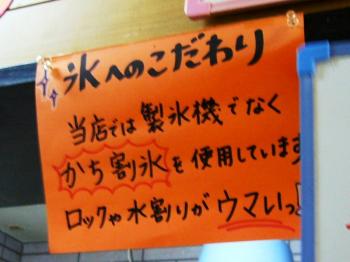 氷へのこだわり
当店では製氷機でなく
かち割氷を使用しています
ロックや水割りがウマいっ!